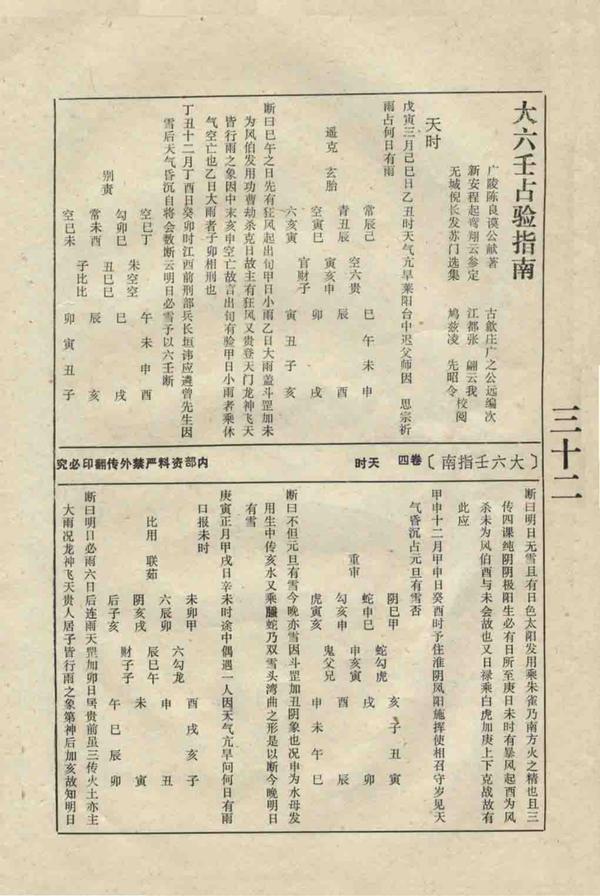 大六壬占验指南
广陵陈良谟公献著
新安程起鸾翔云参定
无城倪长发苏门选集
古歙庄广之公远编次
江都张 翮云我
鸠兹凌 先昭令
校阅
天时
戊寅三月己巳日乙丑时天气亢旱莱阳台中迟父师因 思宗祈
雨占何日有雨
常辰己 巳午未申
青丑辰 空六贵 辰 酉
遥克 玄胎 空寅巳 寅亥申 卯 戌
六亥寅 官财子 寅丑子亥
断曰巳午之日先有狂风起出旬甲日小雨乙日大雨盖斗罡加未
为风伯发用功曹劫杀克日故主有狂风又贵登天门龙神飞天
皆行雨之象因中末亥申空亡故言出旬有验甲日小雨者乘休
气空亡也乙日大雨者子卯相刑也
丁丑十二月丁酉日癸卯时江西前刑部兵长垣讳应遴曾先生因
雪后天气昏沉自将会数断云明日必雪予以六壬断
空巳丁 午未申酉
勾卯巳 朱空空 巳 戌
别责 常未酉 丑巳巳 辰 亥
空巳未 子比比 卯寅丑子
三十二
〔大六壬指南〕 卷四 天时 内部资料严禁外传翻印必究
断曰明日无雪且有日色太阳发用乘朱雀乃南方火之精也且三
传四课纯阴阴极阳生必有日所至庚日未时有暴风起酉为风
杀未为风伯酉与未会故也又日禄乘白虎加庚上下克战故有
此应
甲申十二月甲申日癸酉时予住淮阴凤阳施挥使相召守岁见天
气昏沉占元旦有雪否
阴巳甲 亥子丑寅
蛇申巳 蛇勾虎 戌 卯
重审 勾亥申 申亥寅 酉 辰
虎寅亥 鬼父兄 申未午巳
断曰不但元旦有雪今晚亦雪因斗罡加丑阴象也况申为水母发
用生中传亥水又乘螣蛇乃双雪头湾曲之形是以断今晚明日
有雪
庚寅正月甲戌日辛未时途中偶遇一人因天气亢旱问何日有雨
口报未时
未卯甲 酉戌亥子
六辰卯 六勾龙 申 丑
比用 联茹 阴亥戌 辰巳午 未 寅
后子亥 财子子 午巳辰卯
断曰明日必雨六日后连雨天罡加卯日居贵前虽三传火土亦主
大雨况龙神飞天贵人居子皆行雨之象第神后加亥故知明日